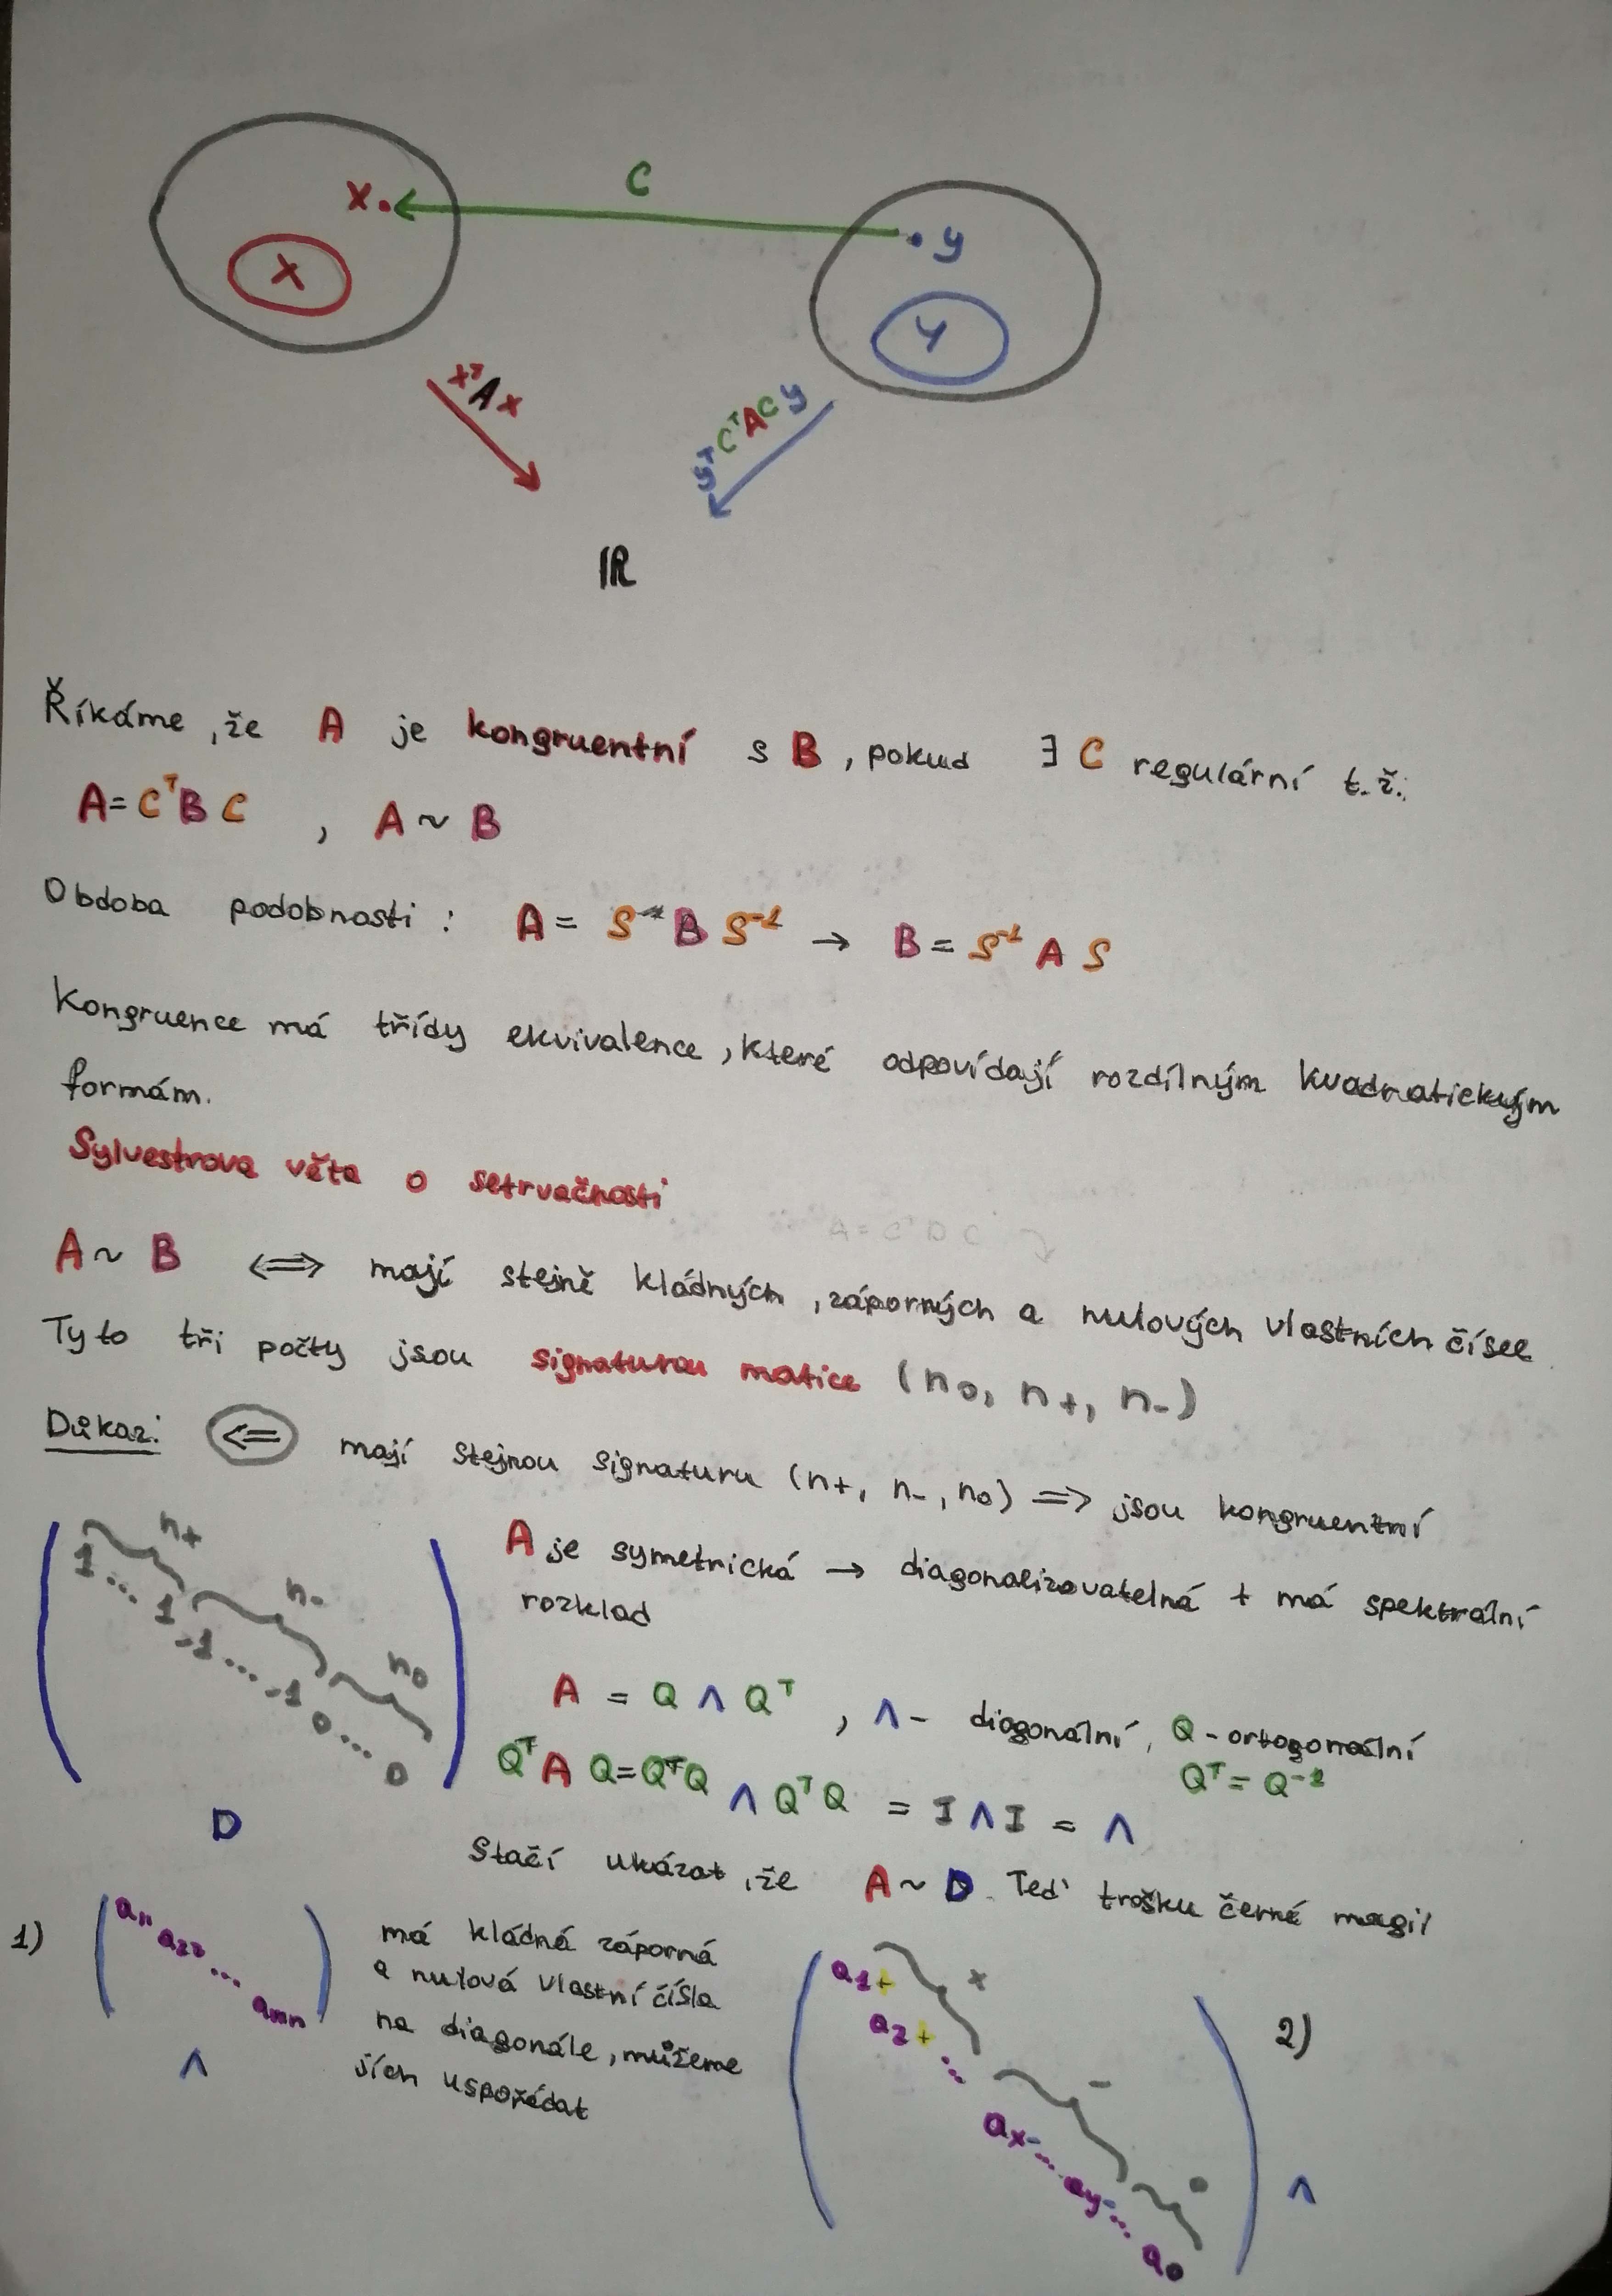 C
X.
. y
X
Y
xᵀAx
yᵀCᵀACy
ℝ
Říkáme, že A je kongruentní s B, pokud ∃ C regulární t.ž.:
A = CᵀB C , A ~ B
Obdoba podobnosti : A = B S⁻¹ → B = S⁻¹ A S
Kongruence má třídy ekvivalence, které odpovídají rozdílným kvadratickým
formám.
Sylvestrova věta o setrvačnosti
A = CᵀD C
A ~ B ⟺ mají stejně kládných, záporných a nulových vlastních čísel
Tyto tři počty jsou signaturou matice (n₀, n₊, n₋)
Důkaz: ⟸ mají stejnou signaturu (n₊, n₋, n₀) ⟹ jsou kongruentní
n₊
1 .... 1
n₋
-1 .... -1
n₀
0 .... 0
D
A je symetrická → diagonalizovatelná + má spektrální
rozklad
A = Q Λ Qᵀ , Λ - diagonální, Q - ortogonální
Qᵀ A Q = QᵀQ Λ QᵀQ = I Λ I = Λ Qᵀ = Q⁻¹
Stačí ukázat, že A ~ D. Teď trošku černé magií
1) a₁₁ a₂₂ ... aₙₙ
Λ
má kládná záporná
a nulová vlastní čísla
na diagonále, můžeme
jích uspořádat
2)
a₁+ +
a₂+ ...
aₓ- ... -
a_y- ...
a₀ 0
Λ